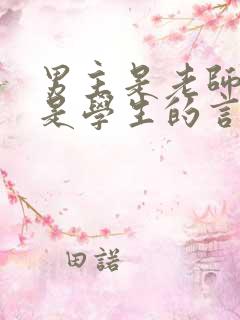 男主是老師
是學生的言
田諾